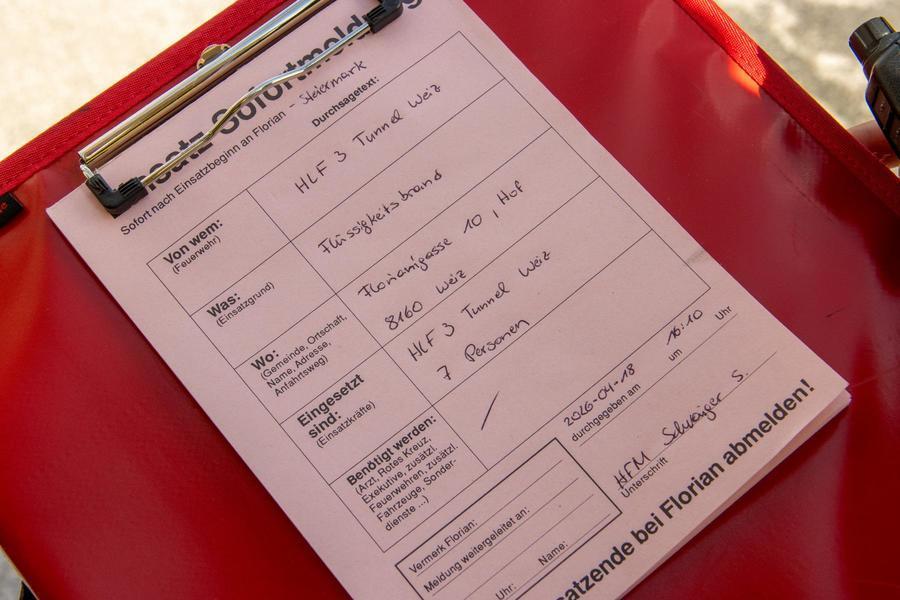 satz-Sofortmeldung
Sofort nach Einsatzbeginn an Florian - Steiermark
Durchsagetext:
Von wem:
(Feuerwehr)
HLF 3 Tunnel Weiz
Was:
(Einsatzgrund)
Flüssigkeitsbrand
Wo:
(Gemeinde, Ortschaft,
Name, Adresse,
Anfahrtsweg)
Florianigasse 10, Hof
8160 Weiz
Eingesetzt
sind:
(Einsatzkräfte)
HLF 3 Tunnel Weiz
7 Personen
Benötigt werden:
(Arzt, Rotes Kreuz,
Exekutive, zusätzl.
Feuerwehren, zusätzl.
Fahrzeuge, Sonder-
dienste ...)
/
2026-04-18 16:10 Uhr
durchgegeben am um
HFM Schwaiger S.
Unterschrift
Vermerk Florian:
Meldung weitergeleitet an:
Uhr: Name:
satzende bei Florian abmelden!